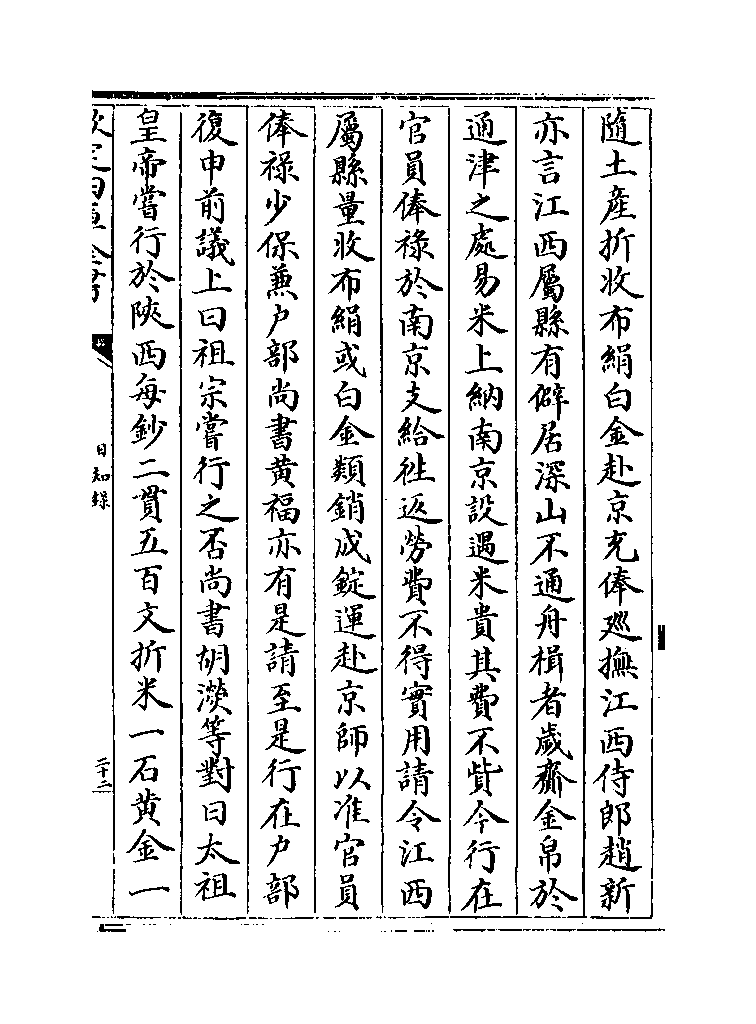 隨土產折收布絹白金赴京充俸廵撫江西侍郎趙新
亦言江西屬縣有僻居深山不通舟楫者歲齎金帛於
通津之處易米上納南京設遇米貴其費不貲今行在
官員俸祿於南京支給徃返勞費不得實用請令江西
屬縣量收布絹或白金類銷成錠運赴京師以准官員
俸祿少保兼户部尚書黄福亦有是請至是行在户部
復申前議上曰祖宗嘗行之否尚書胡濙等對曰太祖
皇帝嘗行於陜西每鈔二貫五百文折米一石黄金一
欽定四庫全書
日知録
二十二